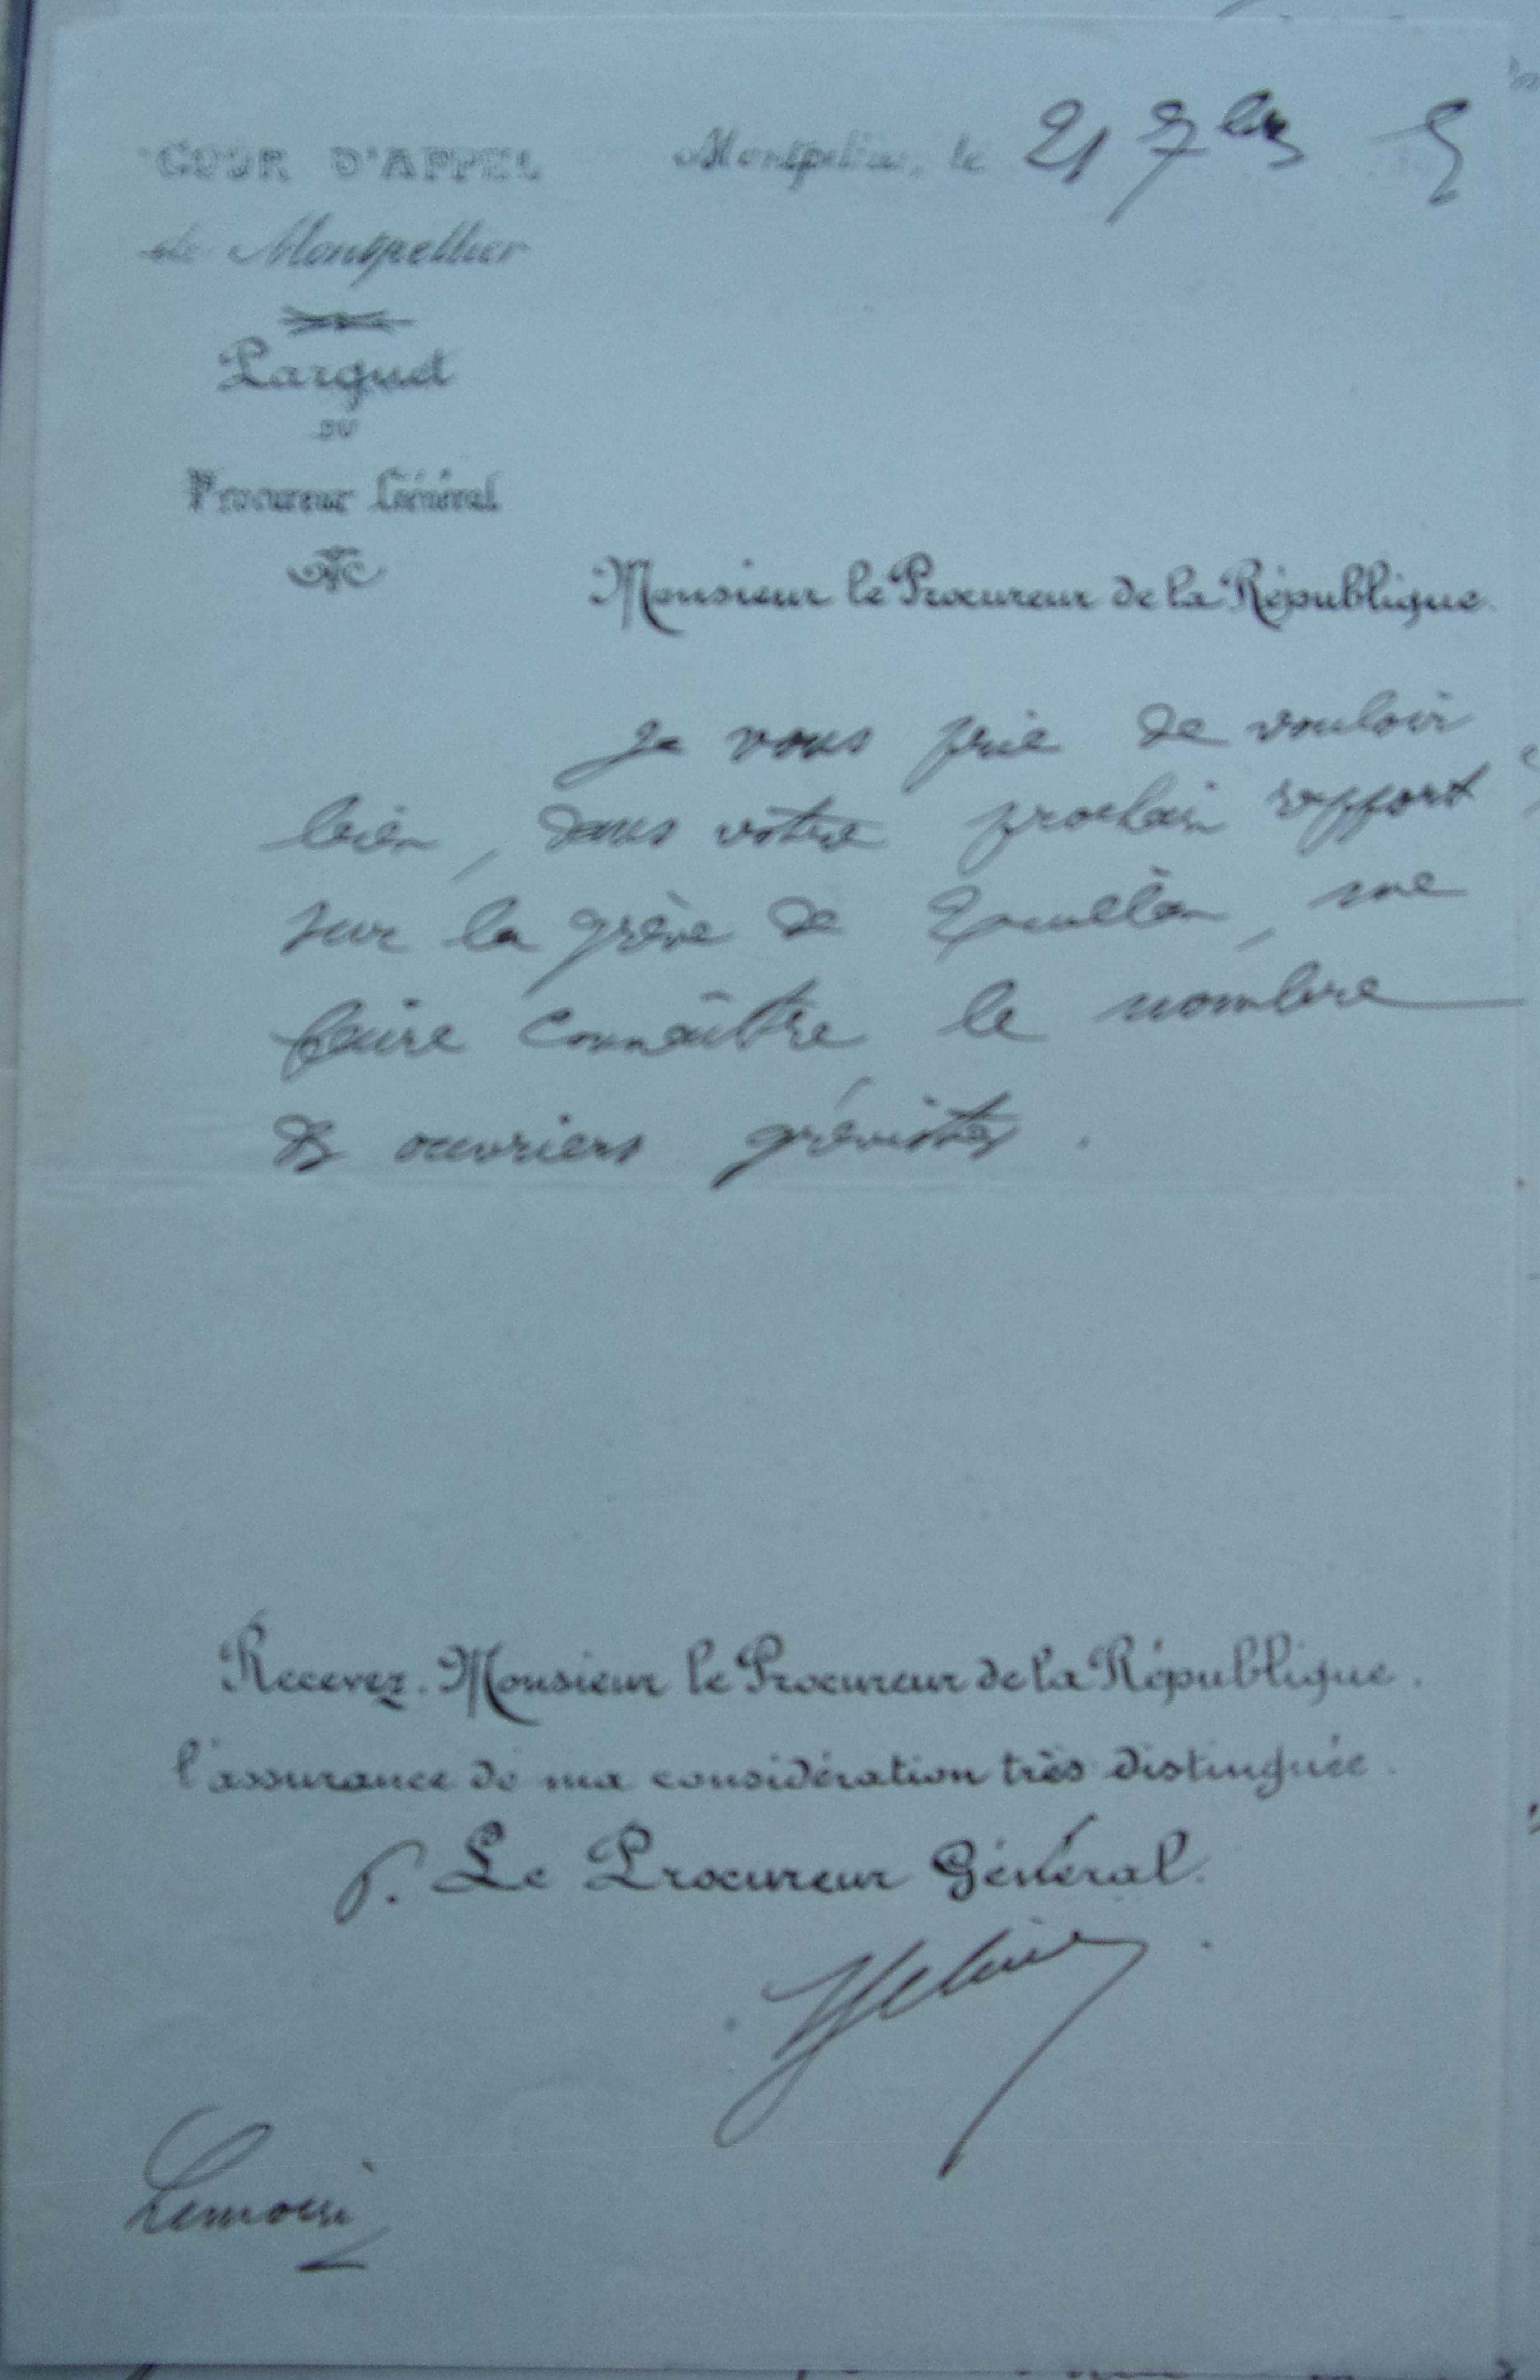 COUR D'APPEL
de Montpellier
Parquet
DU
Procureur Général
Montpellier, le 21 7bre 5
Monsieur le Procureur de la République.
Je vous prie de vouloir
bien, dans votre prochain rapport
sur la grève de, me
faire connaître le nombre
des ouvriers grévistes.
Recevez, Monsieur le Procureur de la République,
l'assurance de ma considération très distinguée.
p. Le Procureur Général.